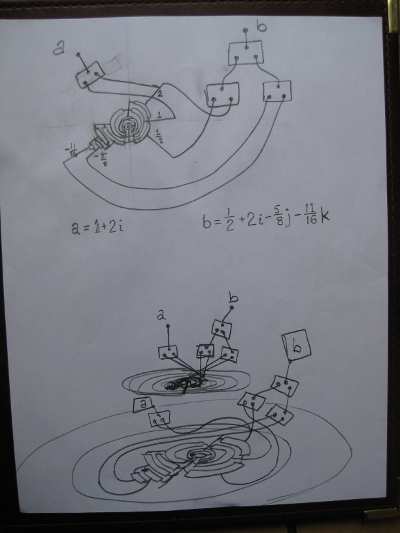 a
b
2
1
1/2
-11/16
-5/8
a = 1+2i
b = 1/2 + 2i - 5/8 j - 11/16 k
a
b
b
a